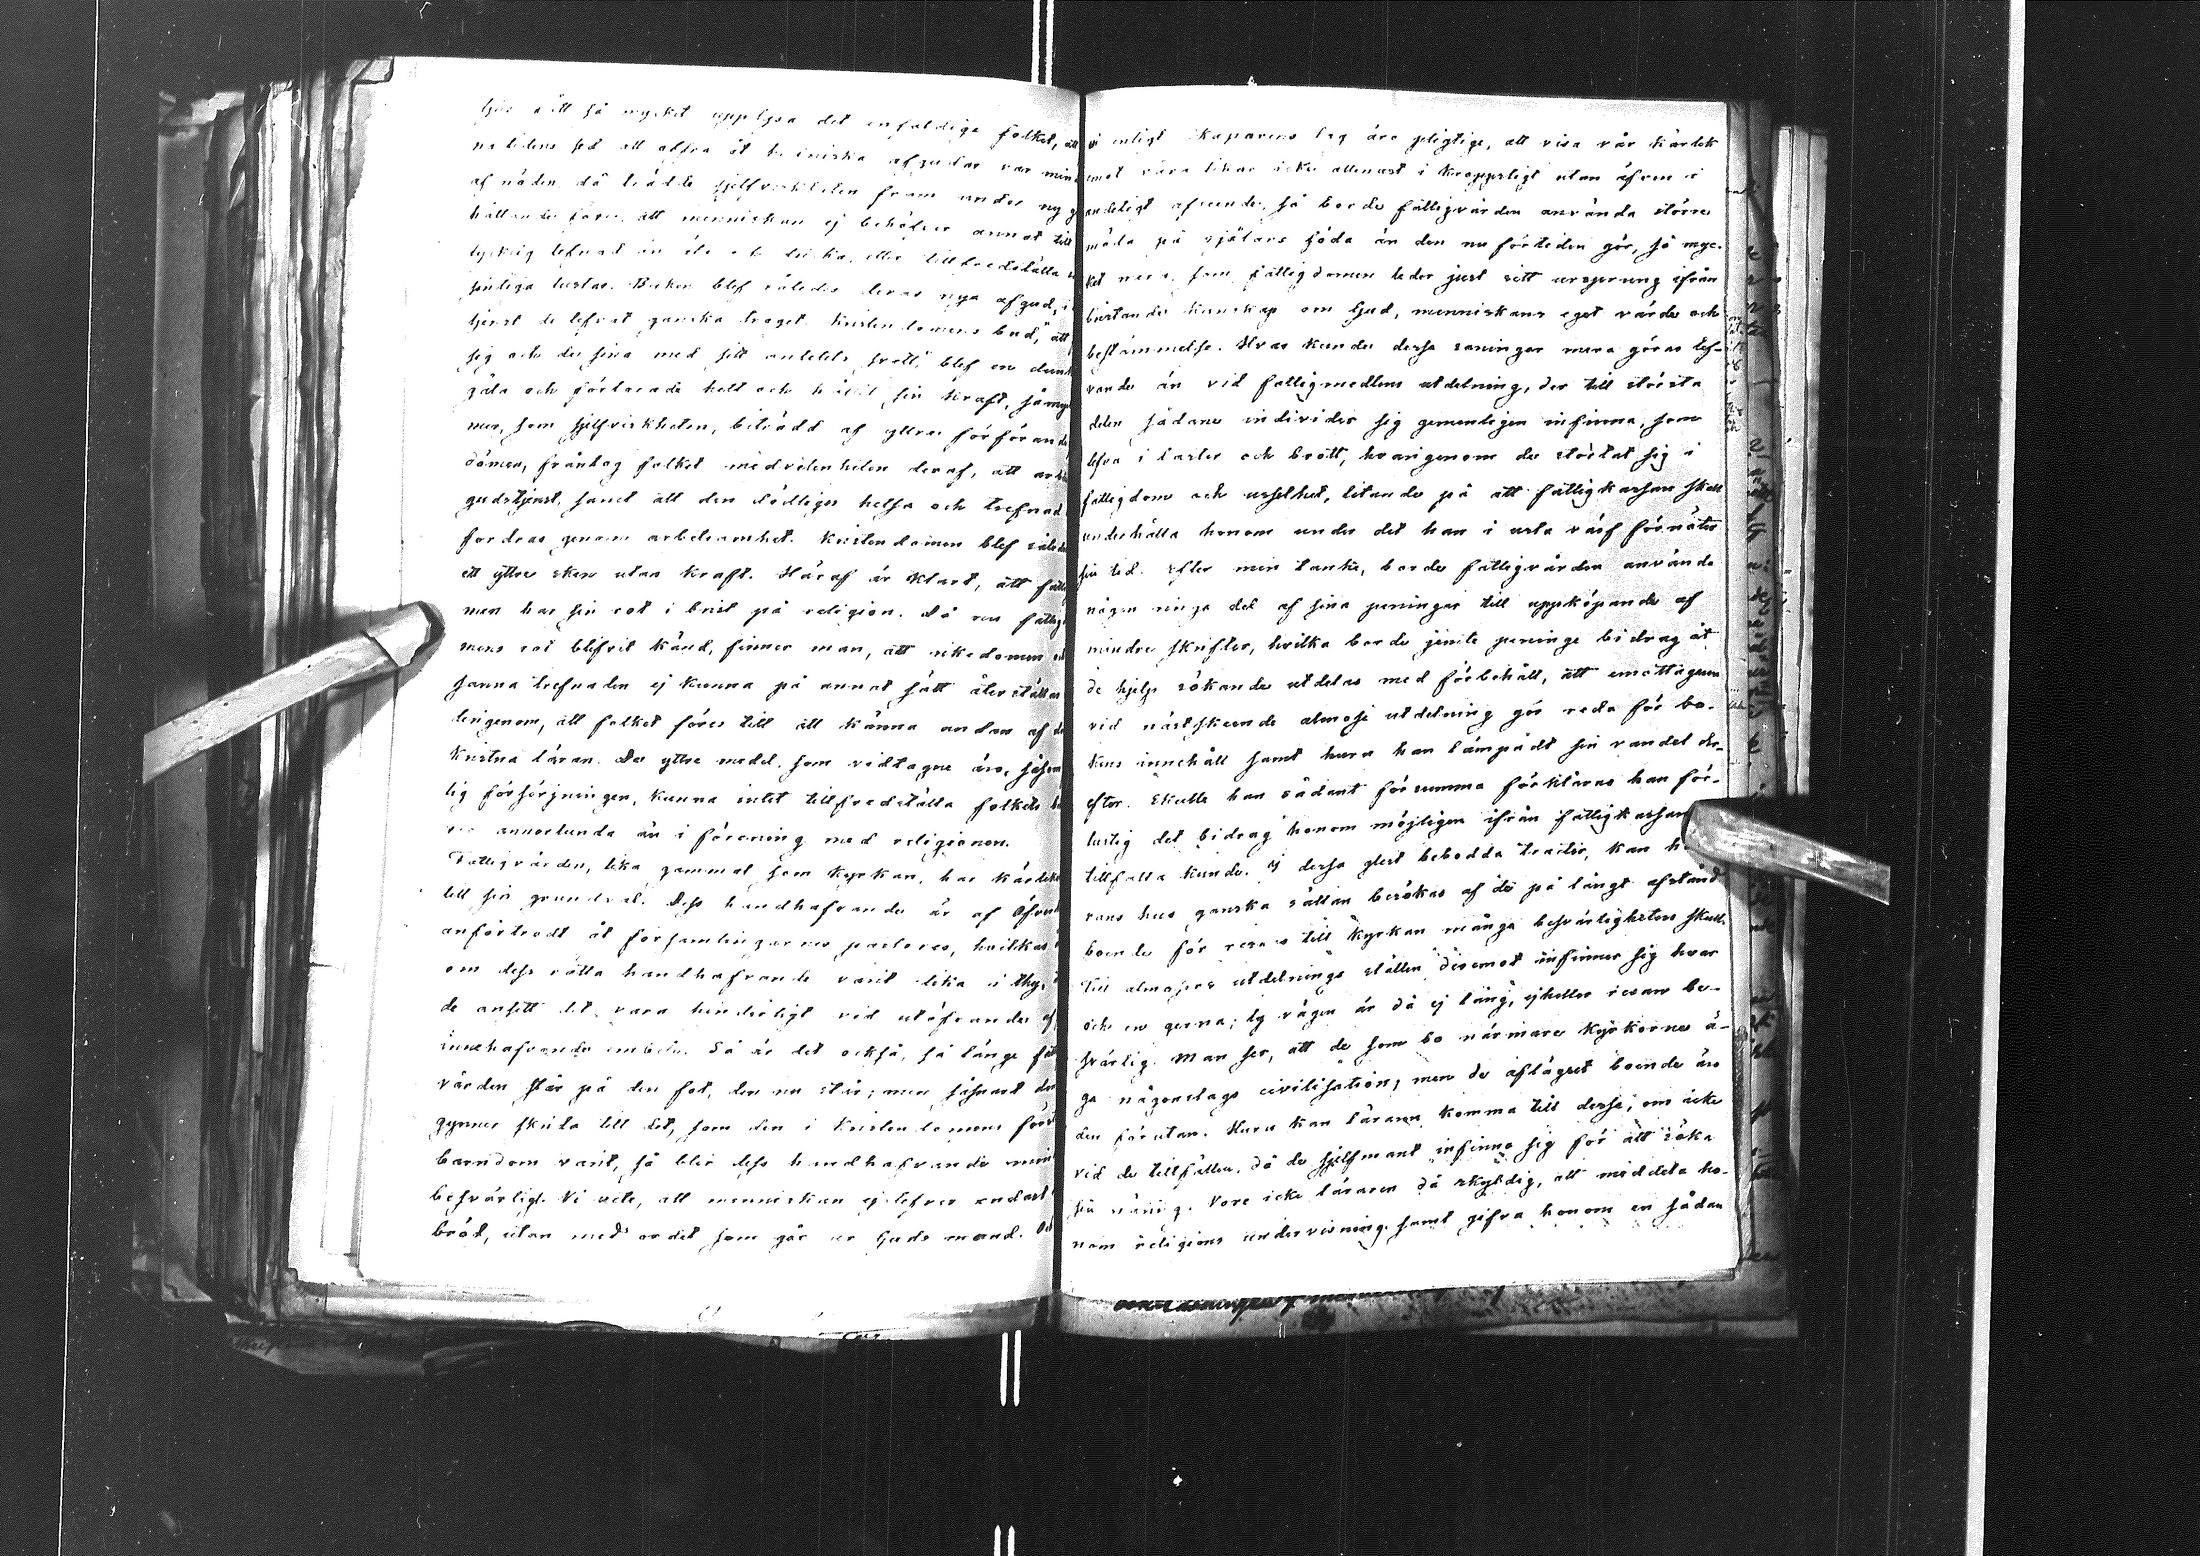 så mycket upplysa det enfaldiga folket, att
sed att offra åt afgudar var min
af nåden då trädde sjelfviskheten fram under ny g
hållande före, att menniskan ej behöfver annat till
lycklig lefnad än äta o dricka, eller tillfredsställa
sinliga lustar. Buken blef således deras nya afgud, i
tjenst de lefvat ganska troget. Kristendomens bud, "att
sig och de sina med sitt anletets svett," blef en dunk
gåta och förlorade helt och hållit sin kraft, så myc
mer, som sjelfviskheten, biträdd af yttre förförande
dömen, fråntog folket medvetenheten deraf, att arb
gudstjenst, samt att den dödliges helsa och trefnad
fordras genom arbetsamhet. Kristendomen blef således
ett yttre sken utan kraft. Häraf är klart, att fatt
men har sin rot i brist på religion. Då nu fattig
mens rot blifvit känd, finner man, att rikedomen oc
sanna trefnaden ej kunna på annat sätt återställas
derigenom, att folket föres till att känna andan af d
Kristna läran. De yttre medel, som vidtagne äro, såsom
lig försörjningen, kunna intet tillfredställa folkets b
annorlunda än i förening med religionen.
Fattigvården, lika gammal som kyrkan, har kärleke
till sin grundval. Dess handhafvande är af Öfver
anförtrodt åt församlingarnes pastorer, hvilkas
om dess rätta handhafvande varit lika i thy,
de ansett det vara hinderligt vid utöfvandet af
innehafvande embete. Så är det också, så länge fat
vården står på den fot, den nu står; men såsnart den
gynner skrida till det, som den i Kristendomens förs
barndom varit, så blir dess handhafvande min
besvärligt. Vi vete, att menniskan ej lefver endast
bröd, utan med ordet som går ur Guds mund. Då
vi enligt Skaparens lag äro pligtige, att visa vår kärlek
emot våra likar icke allenast i kroppsligt utan äfven i
andeligt afseende, så borde fattigvården använda större
möda på själars föda än den nu förtiden gör, så myc-
ket mer, som fattigdomen leder just sitt ursprung ifrån
bristande kunskap om Gud, menniskans eget värde och
bestämmelse. Hvar kunde dessa sanningar mera göras lef-
vande än vid fattigmedlens utdelning, der till största
delen sådane individer sig gemenligen infinna, som
lefva i laster och brott, hvarigenom de störtat sig i
fattigdom och uselhet, litande på att fattigkassan skall
underhålla honom under det han i usla värf förnöter
sin tid. Efter min tanke, borde fattigvården använda
någon ringa del af sina peningar till uppköpande af
mindre skrifter, hvilka borde jemte peninge bidrag åt
de hjelp sökande utdelas med förbehåll, att emottagaren
vid nästskeende almose utdelning gör reda för bo-
kens innehåll samt huru han lämpadt sin vandel der-
efter. Skulle han sådant försumma förklaras han för-
lustig det bidrag honom möjligen ifrån fattigkassan
tillfalla kunde. I dessa glest bebodda trakter, kan h
rans hus ganska sällan besökas af de på långt afstånd
boende för resans till kyrkan många besvärligheters skull.
Till almosors utdelnings ställen deremot infinner sig hvar
och en gerna; ty vägen är då ej lång, ejheller resan be-
svärlig. Man ser, att de som bo närmare kyrkorne ä-
ga någonslags civilisation; men de aflägset boende äro
den förutan. Huru kan läraren komma till desse, om icke
vid de tillfällen, då de sjelfmant infinna sig för att söka
sin näring. Vore icke läraren då skyldig, att meddela ho-
nom religions undervisning samt gifva honom en sådan